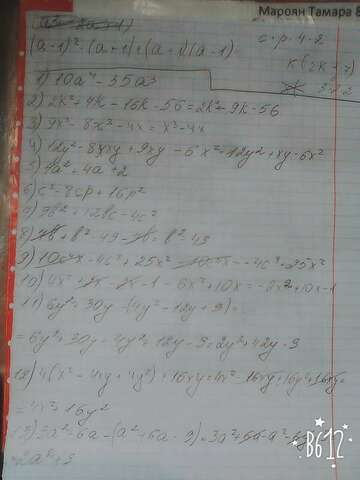 Мароян Тамара
(a-1)² · (a+1) = (a-1)(a-1)
с. р. 4-2
1) 10a⁴ - 35a³
2) 2k² + 7k - 16k - 56 = 2k² - 9k - 56
3) 9x² - 8x² - 4x = x² - 4x
4) 12y² - 8xy + 9xy - 6x² = 12y² + xy - 6x²
5) 4a² + 4a + 2
6) c² - 8cp + 16p²
7) 9b² + 12bc - 4c²
8) 7b + b² - 49 - 7b = b² - 49
9) 10cx - 4c² + 25x² - 10cx = -4c² + 25x²
10) 4x² + 2x - 2x - 1 - 6x² + 10x = -2x² + 10x - 1
11) 6y² + 30y - (4y² - 12y + 9) =
= 6y² + 30y - 4y² + 12y - 9 = 2y² + 42y - 9
12) 4(x² - 4xy + 4y²) + 16xy = 4x² - 16xy + 16y² + 16xy =
= 4x² + 16y²
13) 3a² - 6a - (a² - 6a - 9) = 3a² + 6a - a² - 6a
2a² + 9
B612